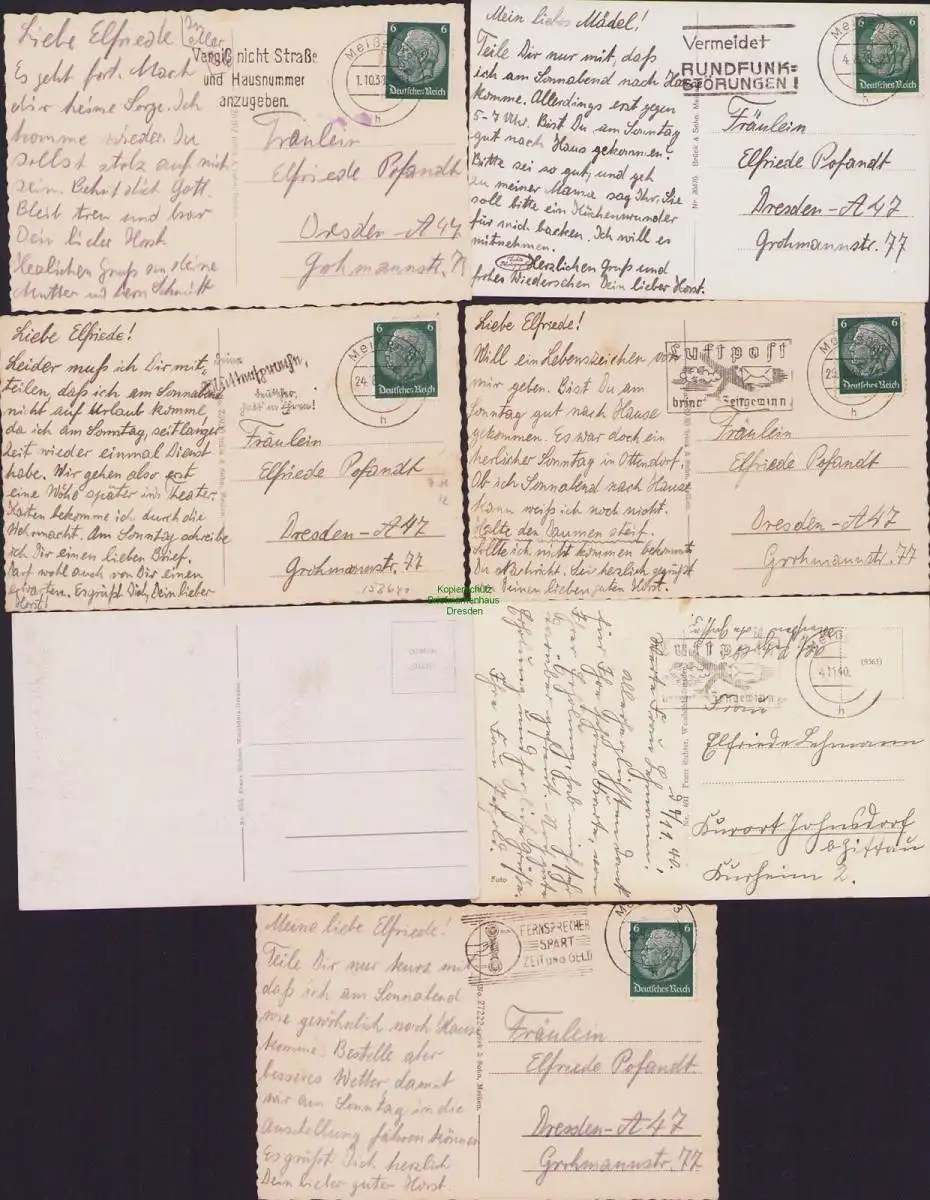 Liebe Elfriede
Es geht fort. Mach
dir keine Sorge. Ich
komme wieder. Du
sollst stolz auf mich
sein. Behüt dich Gott.
Bleib treu und brav
Dein lieber Horst
Herzlichen Gruß an deine
Mutter und
Vergiß nicht Straße
und Hausnummer
anzugeben.
1.10.38
h
6 6
Deutsches Reich
Fräulein
Elfriede Pofandt
Dresden-A47
Grohmannstr. 77
Mein liebes Mädel!
Teile Dir nur mit, daß
ich am Sonnabend nach Haus
komme. Allerdings erst gegen
5-7 Uhr. Bist Du am Sonntag
gut nach Haus gekommen?
Bitte sei so gut, und geh
zu meiner Mama sag Ihr, Sie
soll bitte ein Küchenwunder
für mich backen. Ich will es
mitnehmen.
Herzlichen Gruß und
frohes Wiedersehen Dein lieber Horst.
Vermeidet
RUNDFUNK=
STÖRUNGEN!
h
6 6
Deutsches Reich
Fräulein
Elfriede Pofandt
Dresden-A47
Grohmannstr. 77
Liebe Elfriede!
Leider muß ich Dir mit,
teilen, daß ich am Sonnabend
nicht auf Urlaub komme,
da ich am Sonntag, seit langer
Zeit wieder einmal Dienst
habe. Wir gehen also erst
eine Woche später ins Theater.
Karten bekomme ich durch die
Wehrmacht. Am Sonntag schreibe
ich Dir einen lieben Brief.
Darf wohl auch von Dir einen
erwarten. Es grüßt Dich, Dein lieber
Horst!
h
6 6
Deutsches Reich
Fräulein
Elfriede Pofandt
Dresden-A47
Grohmannstr. 77
Liebe Elfriede!
Will ein Lebenszeichen von
mir geben. Bist Du am
Sonntag gut nach Hause
gekommen. Es war doch ein
herlicher Sonntag in Ottendorf.
Ob ich Sonnabend nach Hause
kann weiß ich noch nicht.
Halte den Daumen steif.
Sollte ich nicht kommen bekommst
Du Nachricht. Sei herzlich gegrüßt
von Deinen lieben, guten Horst.
Luftpost
bringt Zeitgewinn
h
6 6
Deutsches Reich
Fräulein
Elfriede Pofandt
Dresden-A47
Grohmannstr. 77
Kopierschutz
Briefmarkenhaus
Dresden
Luftpost
Zeitgewinn
h
(9363)
Frau
Elfriede Lehmann
Kurort Johnsdorf
b/Zittau
Kurheim 2.
Foto
Meine liebe Elfriede!
Teile Dir nur kurz mit
daß ich am Sonnabend
wie gewöhnlich nach Haus
komme. Bestelle aber
besseres Wetter, damit
wir am Sonntag in die
Ausstellung fahren können
Es grüßt Dich herzlich
Dein lieber guter Horst.
FERNSPRECHER
SPART
ZEIT UND GELD
6 6
Deutsches Reich
Fräulein
Elfriede Pofandt
Dresden-A47
Grohmannstr. 77